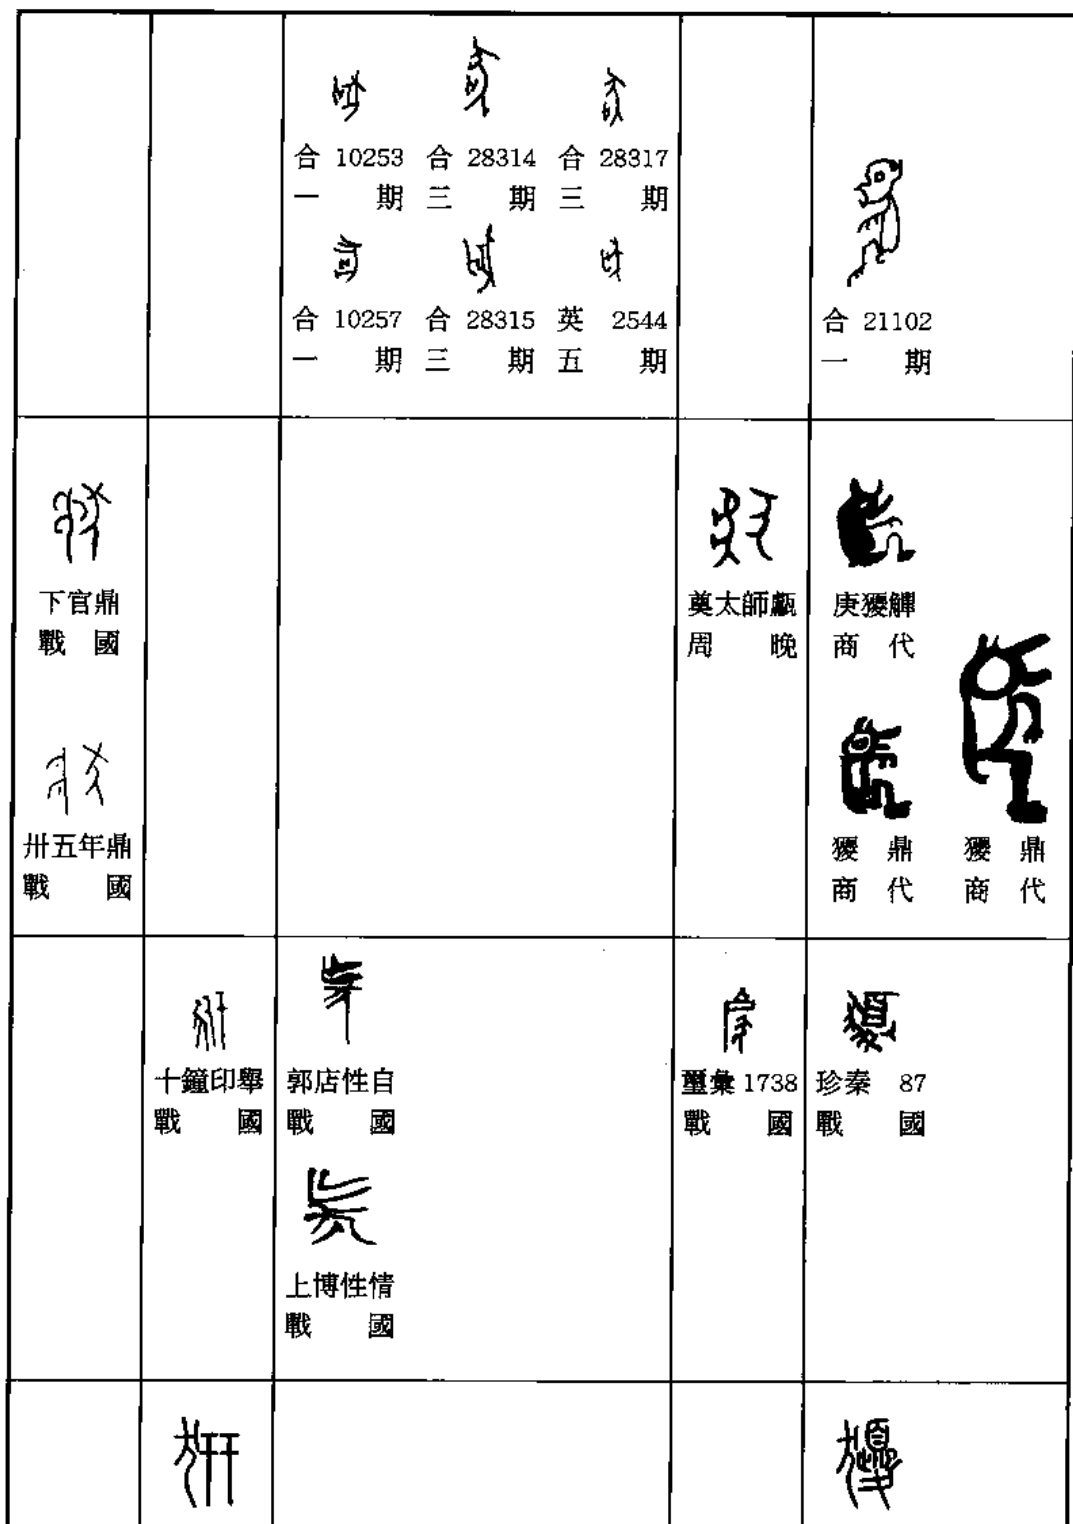 合 10253 合 28314 合 28317
一 期 三 期 三 期
合 10257 合 28315 英 2544
一 期 三 期 五 期
合 21102
一 期
下官鼎
戰 國
卅五年鼎
戰 國
奠太師甗
周 晚
庚獿觶
商 代
獿 鼎
商 代
獿 鼎
商 代
十鐘印舉
戰 國
郭店性自
戰 國
上博性情
戰 國
璽彙 1738
戰 國
珍秦 87
戰 國